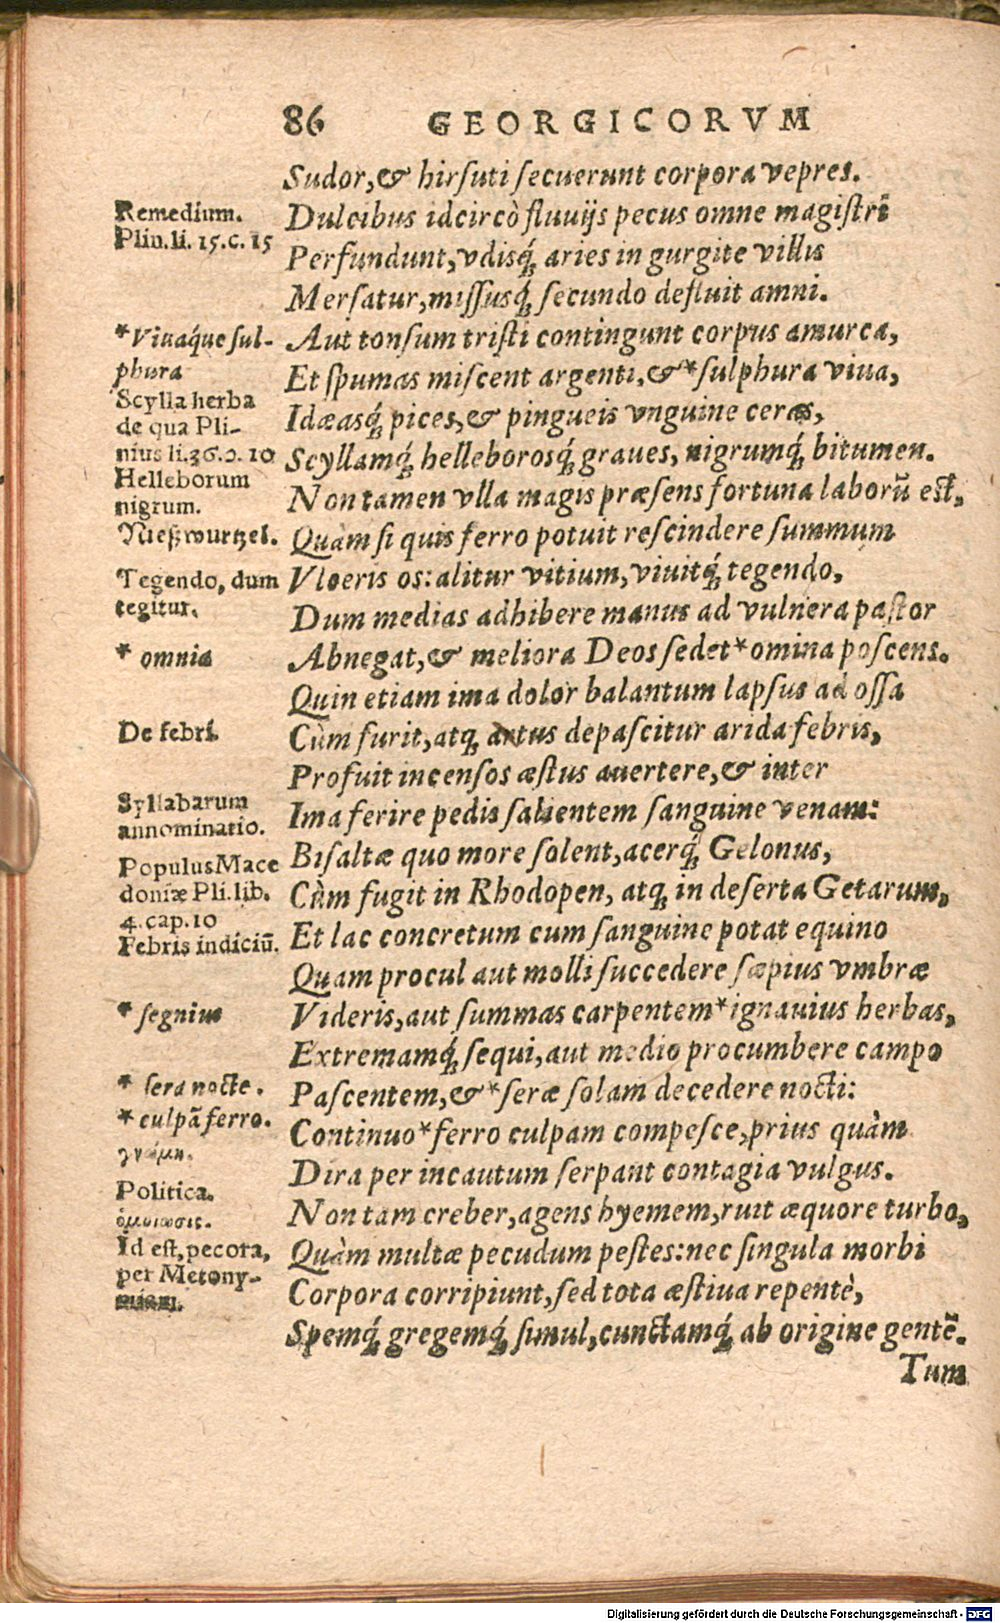 86 GEORGICORVM
Sudor, & hirſuti ſecuerunt corpora vepres.
Dulcibus idcircò fluuijs pecus omne magiſtri
Perfundunt, vdisq́; aries in gurgite villis
Merſatur, miſſusq́; ſecundo defluit amni.
Aut tonſum triſti contingunt corpus amurca,
Et ſpumas miſcent argenti, & *ſulphura viua,
Idæasq́; pices, & pingueis vnguine ceras,
Scyllamq́; helleborosq́; graues, nigrumq́; bitumen.
Non tamen vlla magis præſens fortuna laborũ eſt,
Quàm ſi quis ferro potuit reſcindere ſummum
Vlceris os: alitur vitium, viuitq́; tegendo,
Dum medias adhibere manus ad vulnera paſtor
Abnegat, & meliora Deos ſedet *omina poſcens.
Quin etiam ima dolor balantum lapſus ad oſſa
Cùm furit, atq; artus depaſcitur arida febris,
Profuit incenſos æſtus auertere, & inter
Ima ferire pedis ſalientem ſanguine venam:
Biſaltæ quo more ſolent, acerq́; Gelonus,
Cùm fugit in Rhodopen, atq; in deſerta Getarum,
Et lac concretum cum ſanguine potat equino
Quam procul aut molli ſuccedere ſæpius vmbræ
Videris, aut ſummas carpentem *ignauius herbas,
Extremamq́; ſequi, aut medio procumbere campo
Paſcentem, & *ſeræ ſolam decedere nocti:
Continuo *ferro culpam compeſce, prius quàm
Dira per incautum ſerpant contagia vulgus.
Non tam creber, agens hyemem, ruit æquore turbo,
Quàm multæ pecudum peſtes: nec ſingula morbi
Corpora corripiunt, ſed tota æſtiua repentè,
Spemq́; gregemq́; ſimul, cunctamq́; ab origine gentẽ.
Tum
Remedium.
Plin. li. 15. c. 15
*Viuaq́ue ſul-
phura
Scylla herba
de qua Pli-
nius li. 10
Helleborum
nigrum.
Nießwurtzel.
Tegendo, dum
tegitur.
* omnia
De febri.
Syllabarum
annominatio.
Populus Mace
doniæ Pli. lib.
4. cap. 10
Febris indiciũ.
* ſegnius
* ſera nocte.
* culpã ferro.
γνώμη.
Politica.
ὁμοίωσις.
Id eſt, pecora,
per Metony-